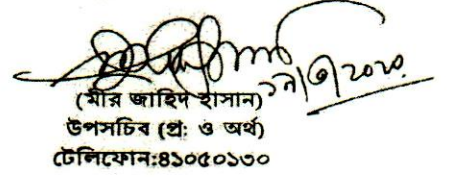 (মীর জাহিদ হাসান)
উপসচিব (প্র: ও অর্থ)
টেলিফোন:৪১০৫০১৩০